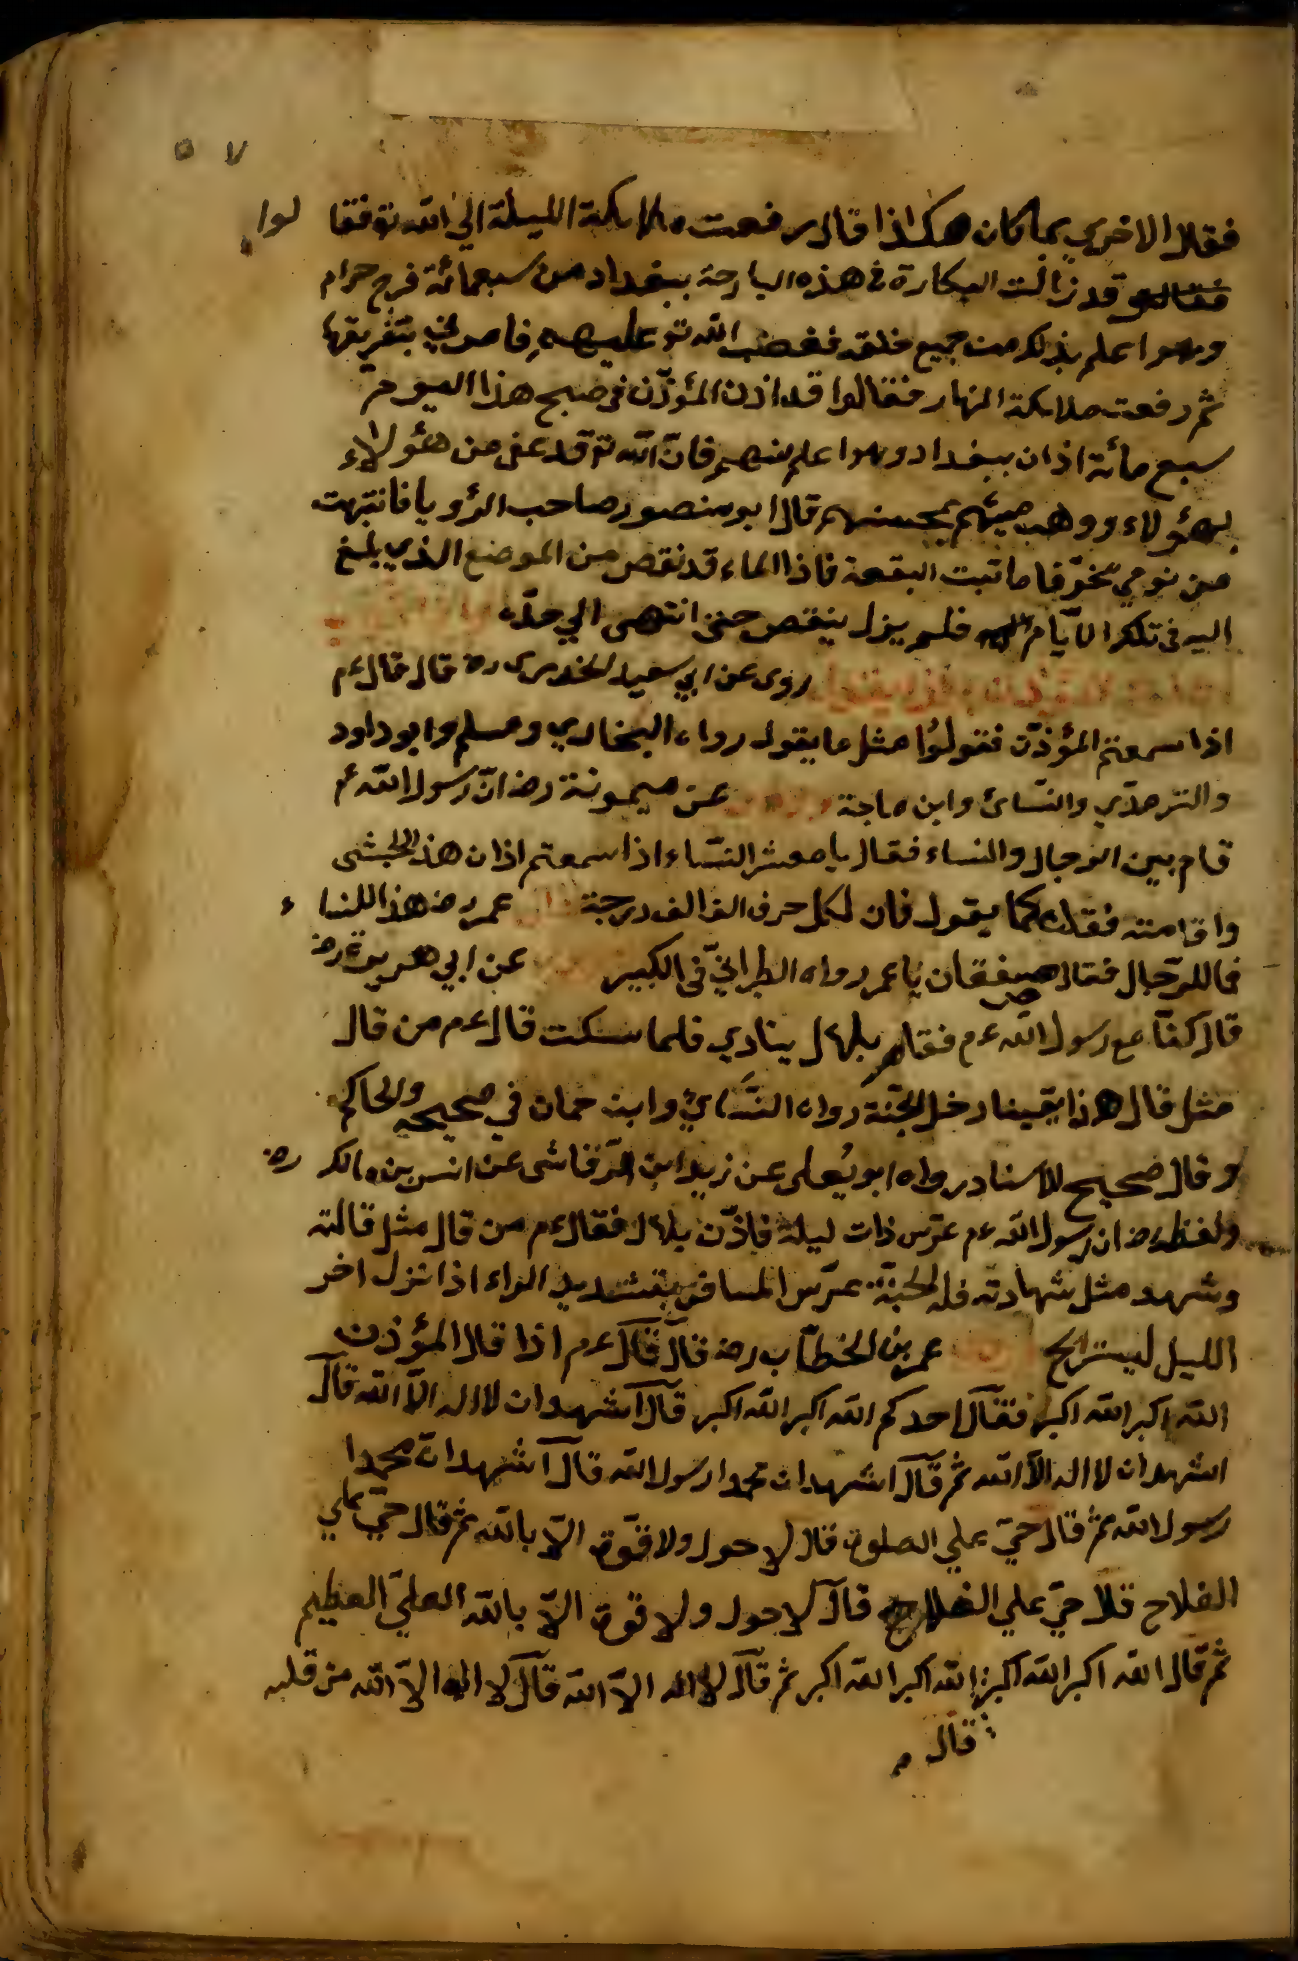 ٥٧
فقال الاخري بما كان هكذا قال رفعت ملائكة الليلة الي الله تو فقالوا
قد زالت البكارة في هذه البارحة ببغداد من سبعمائة فرج حرام
وهو اعلم بذلك من جميع خلقه فغضب الله تو عليهم فامرني بتغريقها
ثم رفعت ملائكة النهار فقالوا قد اذن المؤذن في صبح هذا اليوم
سبع مائة اذان ببغداد وهو اعلم منهم فان الله تو قد عفى من هؤلاء
بهؤلاء ووهب مسيئهم بمحسنهم قال ابو منصور صاحب الرؤيا فانتبهت
من نومي فاذا الماء قد نقص من الموضع الذي بلغ
اليه في تلك الايام فلم يزل ينقص حتى انتهى الي حده
روى عن ابي سعيد الخدرى رض قال قال ءم
اذا سمعتم المؤذن فقولوا مثل ما يقول رواه البخاري ومسلم وابو داود
والترمذي والنسائ وابن ماجة عن ميمونة رض ان رسول الله ءم
قام بين الرجال والنساء فقال يا معشر النساء اذا سمعتم اذان هذا الحبشى
واقامته فقلن كما يقول فان لكل حرف الف الف درجة عمر رض هذا للنساء
فما للرجال فقال ضعفان يا عمر رواه الطبراني في الكبير عن ابي هريرة رض
قال كنا مع رسول الله ءم فقام بلال ينادي فلما سكت قال ءم من قال
مثل قال هذا يقينا دخل الجنة رواه النسائ وابن حبان في صحيحه والحاكم
وقال صحيح الاسناد رواه ابو يعلى عن زيد ابن الرقاشى عن انس بن مالك رض
ولفظه ان رسول الله ءم عرس ذات ليلة فاذن بلال فقال ءم من قال مثل قالته
وشهد مثل شهادته فله الجنة عرس المسافر بتشديد الراء اذا نزل اخر
الليل ليستريح عمر بن الخطاب رض قال قال ءم اذا قال المؤذن
الله اكبر الله اكبر فقال احدكم الله اكبر الله اكبر قال اشهد ان لا اله الا الله قال
اشهد ان لا اله الا الله ثم قال اشهد ان محمدا رسول الله قال اشهد ان محمدا
رسول الله ثم قال حي علي الصلوة قال لا حول ولا قوة الا بالله ثم قال حي علي
الفلاح قال لا حول ولا قوة الا بالله العلي العظيم
ثم قال الله اكبر الله اكبر الله اكبر الله اكبر ثم قال لا اله الا الله قال لا اله الا الله من قلبه
قال